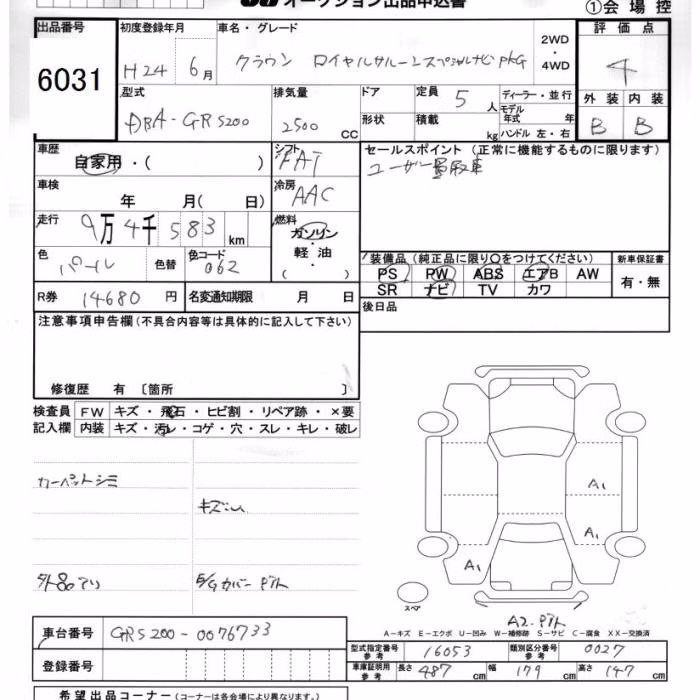 オークション出品申込書
①会場控
出品番号 初度登録年月 車名・グレード 評価点
6031 H24 6月 クラウン ロイヤルサルーンスペシャルナビPKG 2WD・4WD 4
型式 排気量 ドア 定員 5人 ディーラー・並行 外装 内装
DBA-GRS200 2500 CC 形状 積載 kg モデル年式 年 ハンドル 左・右 B B
車歴 シフト セールスポイント(正常に機能するものに限ります)
自家用・( ) FAT ユーザー買取車
車検 年 月( 日) 冷房 AAC
走行 9万4千583km 燃料 ガソリン・軽油・( )
色 パール 色替 色コード 062
装備品(純正品に限り○をつけてください) 新車保証書
PS PW ABS エアB AW 有・無
SR ナビ TV カワ
R券 14680円 名変通知期限 月 日 後日品
注意事項申告欄(不具合内容等は具体的に記入して下さい)
修復歴 有〔箇所 〕
検査員 FW キズ・飛石・ヒビ割・リペア跡・×要
記入欄 内装 キズ・汚レ・コゲ・穴・スレ・キレ・破レ
カーペットシミ
キズ
A1
A1
A1
外
E/Gカバー
スペア
A2
A-キズ E-エクボ U-凹み W-補修跡 S-サビ C-腐食 XX-交換済
車台番号 GRS200-0076733
型式指定番号参考 16053 類別区分番号参考 0027
登録番号
車庫証明用参考 長さ 487cm 幅 179cm 高さ 147cm
希望出品コーナー(コーナーは各会場により異なります。)